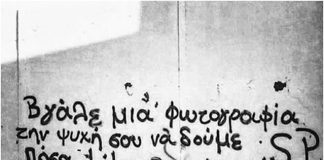 Βγάλε μιά φωτογραφία
την ψυχή σου νά δούμε
SP
Πόσα